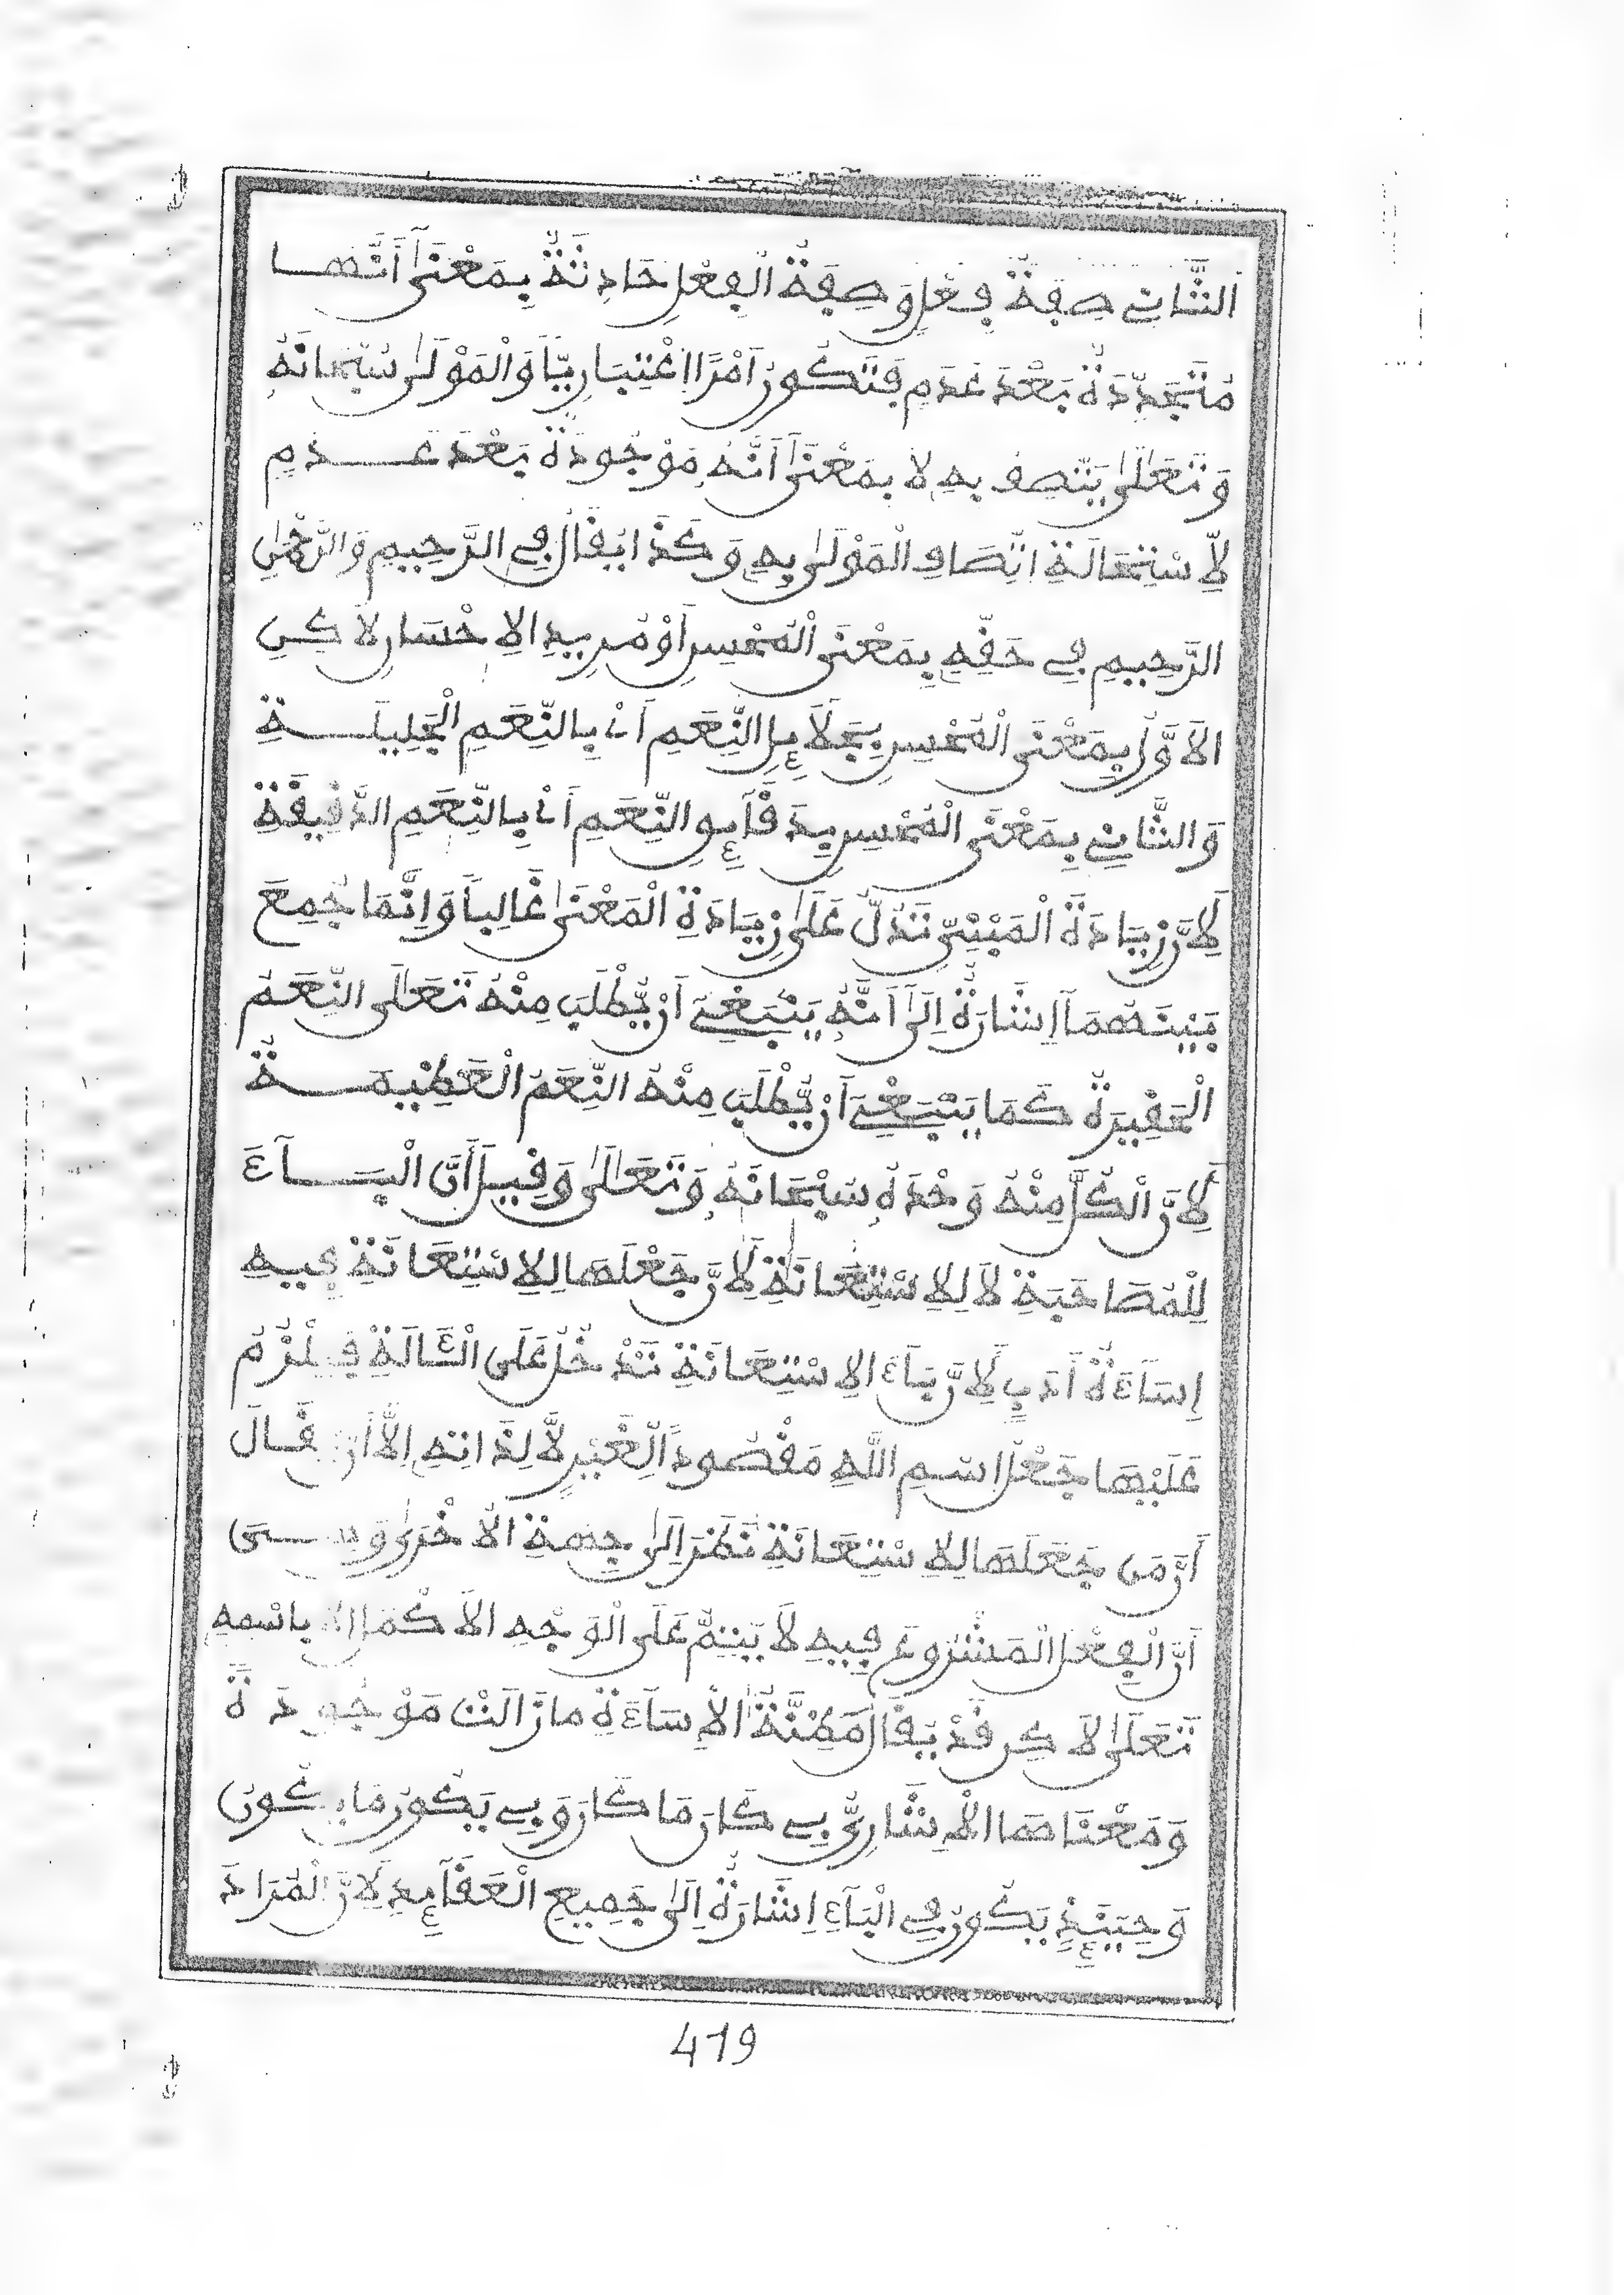 الثَّانِي صِفَةُ فِعْلٍ وَصِفَةُ الْفِعْلِ حَادِثَةٌ بِمَعْنَى أَنَّهَا
مُتَجَدِّدَةٌ بَعْدَ عَدَمٍ فَتَكُونُ أَمْرًا اعْتِبَارِيًّا وَالْمَوْلَى سُبْحَانَهُ
وَتَعَالَى يَتَّصِفُ بِهِ لَا بِمَعْنَى أَنَّهُ مَوْجُودَةٌ بَعْدَ عَدَمٍ
لِاسْتِحَالَةِ اتِّصَافِ الْمَوْلَى بِهِ وَكَذَا يُقَالُ فِي الرَّحِيمِ وَالرَّحْمَنِ
الرَّحِيمِ فِي حَقِّهِ بِمَعْنَى الْمُحْسِنِ أَوْ مُرِيدِ الْإِحْسَانِ لَاكِنِ
الْأَوَّلُ بِمَعْنَى الْمُحْسِنِ بِجَلَائِلِ النِّعَمِ أَيْ بِالنِّعَمِ الْجَلِيلَةِ
وَالثَّانِي بِمَعْنَى الْمُحْسِنِ بِدَقَائِقِ النِّعَمِ أَيْ بِالنِّعَمِ الدَّقِيقَةِ
لِأَنَّ زِيَادَةَ الْمَبْنِيِّ تَدُلُّ عَلَى زِيَادَةِ الْمَعْنَى غَالِبًا وَإِنَّمَا جُمِعَ
بَيْنَهُمَا إِشَارَةٌ إِلَى أَنَّهُ يَنْبَغِي أَنْ يُطْلَبَ مِنْهُ تَعَالَى النِّعَمُ
الْحَقِيرَةُ كَمَا يَنْبَغِي أَنْ يُطْلَبَ مِنْهُ النِّعَمُ الْعَظِيمَةُ
لِأَنَّ الْكُلَّ مِنْهُ وَحْدَهُ سُبْحَانَهُ وَتَعَالَى وَقِيلَ أَنَّ الْبَاءَ
لِلْمُصَاحَبَةِ لَا لِلِاسْتِعَانَةِ لِأَنَّ جَعْلَهَا لِلِاسْتِعَانَةِ فِيهِ
إِسَاءَةُ أَدَبٍ لِأَنَّ بَاءَ الِاسْتِعَانَةِ تَدْخُلُ عَلَى الْآلَةِ فَيَلْزَمُ
عَلَيْهَا جَعْلُ اسْمِ اللَّهِ مَقْصُودًا لِّغَيْرٍ لَّا لِذَاتِهِ إِلَّا أَنْ يُقَالَ
أَنَّ مَن جَعَلَهَا لِلِاسْتِعَانَةِ نَظَرَ إِلَى جِهَةِ الْأُخْرَى وَهِيَ
أَنَّ الْفِعْلَ الْمَشْرُوعَ فِيهِ لَا يَتِمُّ عَلَى الْوَجْهِ الْأَكْمَلِ إِلَّا بِاسْمِهِ
تَعَلَى لَاكِن قَدْ يُقَالُ مَظِنَّةُ الْإِسَاءَةِ مَازَالَتْ مَوْجُودَةً
وَمَعْنَاهَا الْإِشَارِيُّ بِي كَانَ مَا كَانَ وَبِي يَكُونُ مَا يَكُونُ
وَحِينَئِذٍ يَكُونُ فِي الْبَاءِ إِشَارَةٌ إِلَى جَمِيعِ الْعَقَائِدِ لِأَنَّ الْمُرَادَ
419